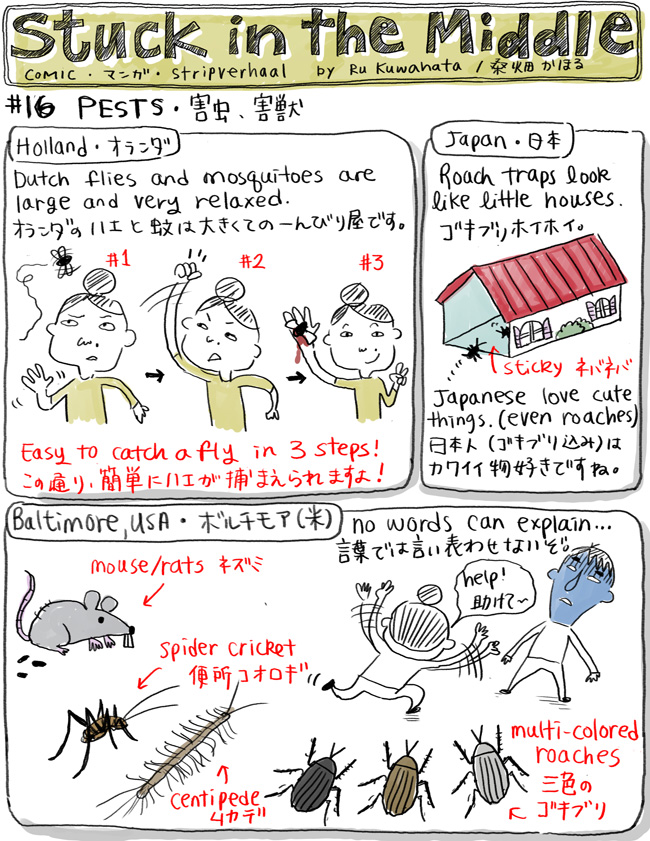 Stuck in the Middle
COMIC・マンガ・Stripverhaal by Ru Kuwahata / 桑畑かほる
#16 PESTS・害虫、害獣
Holland・オランダ
Dutch flies and mosquitoes are
large and very relaxed.
オランダのハエと蚊は大きくてのーんびり屋です。
#1
#2
#3
Easy to catch a fly in 3 steps!
この通り、簡単にハエが捕まえられますよ!
Japan・日本
Roach traps look
like little houses.
ゴキブリホイホイ。
sticky ネバネバ
Japanese love cute
things. (even roaches)
日本人(ゴキブリ込み)は
カワイイ物好きですね。
Baltimore, USA・ボルチモア(米)
no words can explain...
言葉では言い表わせないぞ。
mouse/rats ネズミ
help!
助けて〜
spider cricket
便所コオロギ
centipede
ムカデ
multi-colored
roaches
三色の
ゴキブリ